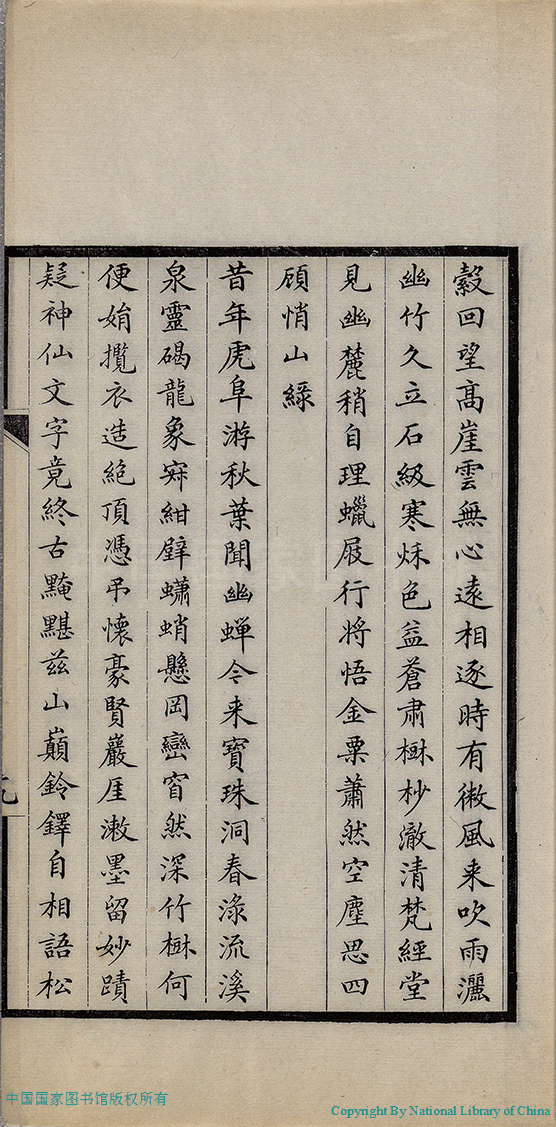 縠回望高崖雲無心遠相逐時有微風来吹雨灑
幽竹久立石級寒秌色益蒼肅楙杪澈清梵經堂
見幽麓稍自理蠟屐行将悟金粟蕭然空塵思四
顧悄山緑
昔年虎阜游秋葉聞幽蟬今来寶珠洞春渌流溪
泉靈碣龍象㝥紺壁蠨蛸懸岡巒窅然深竹楙何
便娟攬衣造絶頂憑弔懷豪賢巖厓漱墨留妙蹟
疑神仙文字竟終古黤黮兹山巔鈴鐸自相語松
中国国家图书馆版权所有
Copyright By National Library of China